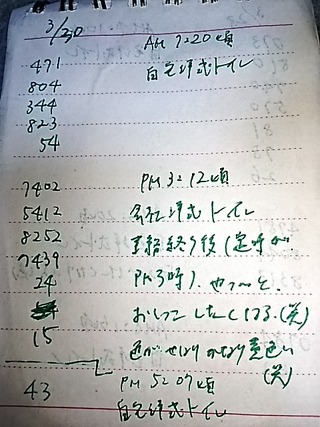 3/30
AM 7:20頃
471 自宅洋式トイレ
804
344
823
54
7402 PM 3:12頃
5412 会社洋式トイレ
8252 業務終了後(定時が
7439
24 PM3時)、やっと、
15 おしっこしたく(笑)
色が かなり黄色い
(笑)
43 PM 5:07頃
自宅洋式トイレ